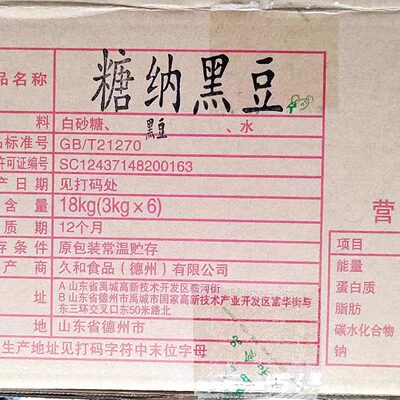 品名称 糖纳黑豆
料 白砂糖、黑豆、水
品标准号 GB/T21270
许可证编号 SC12437148200163
产日期 见打码处
含量 18kg(3kg×6)
质期 12个月
存条件 原包装常温贮存
产商 久和食品（德州）有限公司
址 A 山东省禹城高新技术开发区骇河街
B 山东省德州市禹城市国家高新技术产业开发区富华街与
东三环交叉口东50米路北
地 山东省德州市
生产地址见打码字符中末位字母
营
项目
能量
蛋白质
脂肪
碳水化合物
钠